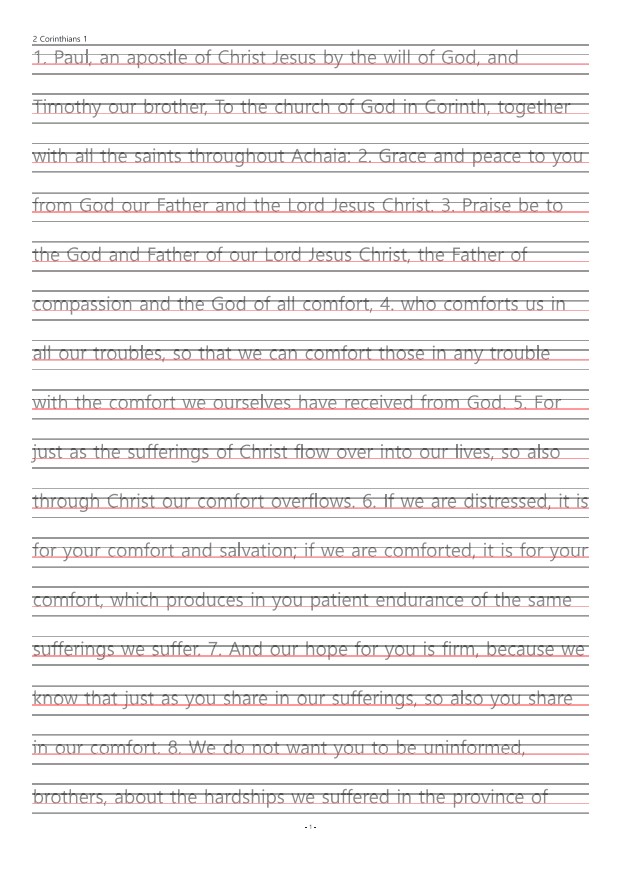 2 Corinthians 1
1. Paul, an apostle of Christ Jesus by the will of God, and
Timothy our brother, To the church of God in Corinth, together
with all the saints throughout Achaia: 2. Grace and peace to you
from God our Father and the Lord Jesus Christ. 3. Praise be to
the God and Father of our Lord Jesus Christ, the Father of
compassion and the God of all comfort, 4. who comforts us in
all our troubles, so that we can comfort those in any trouble
with the comfort we ourselves have received from God. 5. For
just as the sufferings of Christ flow over into our lives, so also
through Christ our comfort overflows. 6. If we are distressed, it is
for your comfort and salvation; if we are comforted, it is for your
comfort, which produces in you patient endurance of the same
sufferings we suffer. 7. And our hope for you is firm, because we
know that just as you share in our sufferings, so also you share
in our comfort. 8. We do not want you to be uninformed,
brothers, about the hardships we suffered in the province of
- 1 -